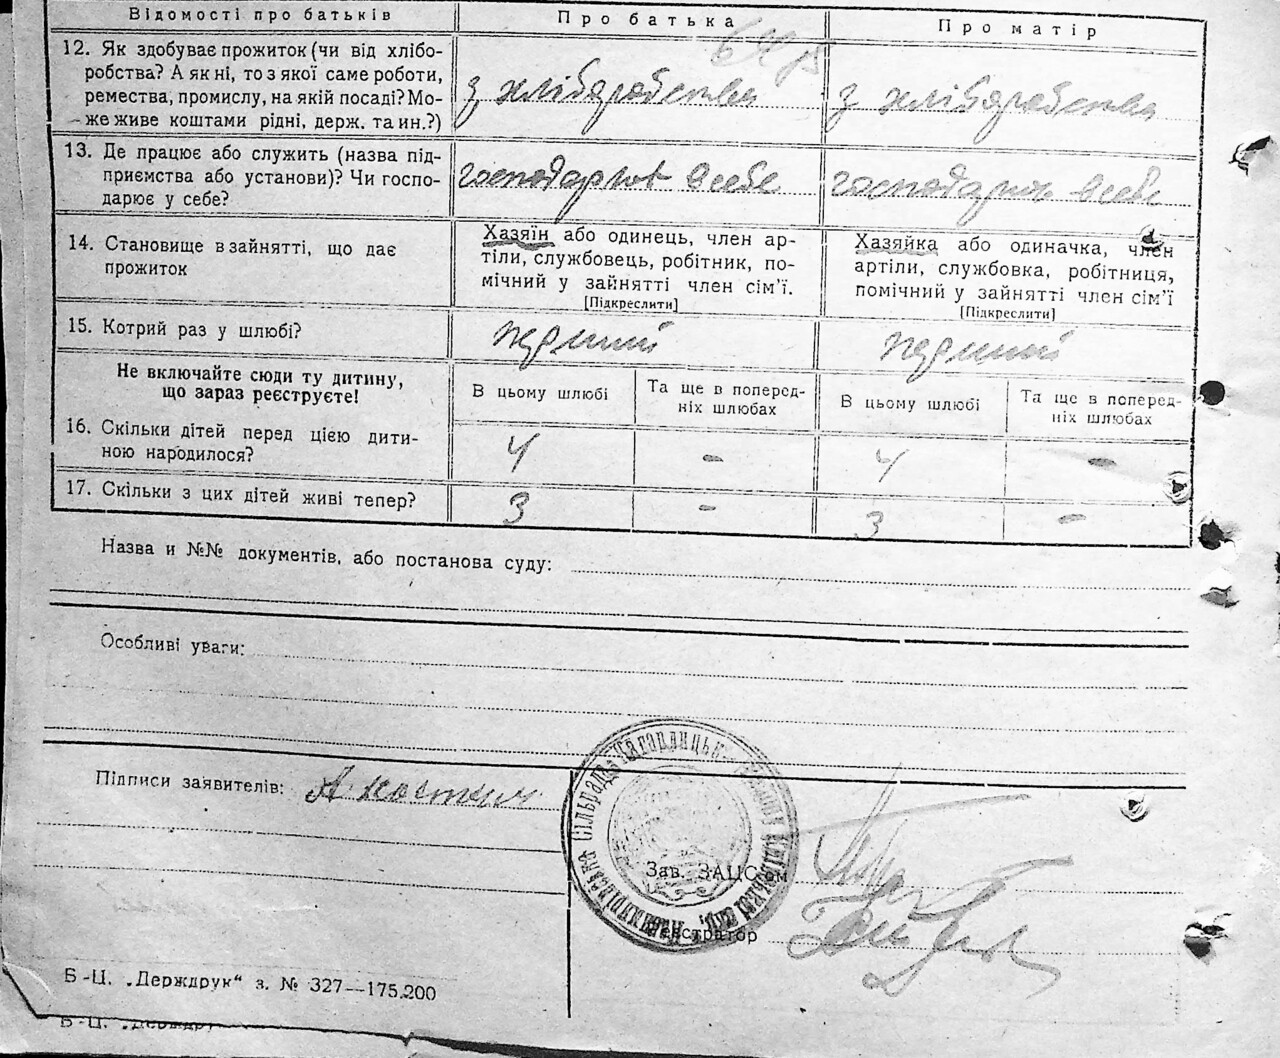 Відомості про батьків
Про батька
Про матір
12. Як здобуває прожиток (чи від хлібо-
робства? А як ні, то з якої саме роботи,
ремества, промислу, на якій посаді? Мо-
же живе коштами рідні, держ. та ин.?)
з хліборобства
з хліборобства
13. Де працює або служить (назва під-
приємства або установи)? Чи госпо-
дарює у себе?
господарює в себе
господарює в себе
14. Становище в зайнятті, що дає
прожиток
Хазяїн або одинець, член ар-
тіли, службовець, робітник, по-
мічний у зайнятті член сім'ї.
[Підкреслити]
Хазяйка або одиначка, член
артіли, службовка, робітниця,
помічний у зайнятті член сім'ї
[Підкреслити]
15. Котрий раз у шлюбі?
перший
перший
Не включайте сюди ту дитину,
що зараз реєструєте!
В цьому шлюбі
Та ще в поперед-
ніх шлюбах
В цьому шлюбі
Та ще в поперед-
ніх шлюбах
16. Скільки дітей перед цією дити-
ною народилося?
4
-
4
-
17. Скільки з цих дітей живі тепер?
3
-
3
-
Назва и №№ документів, або постанова суду:
Особливі уваги:
Підписи заявителів:
Сільрада
Зав. ЗАЦС'ом
Реєстратор
Б-Ц. „Держдрук" з. № 327—175.200
Б-Ц. „Держдру